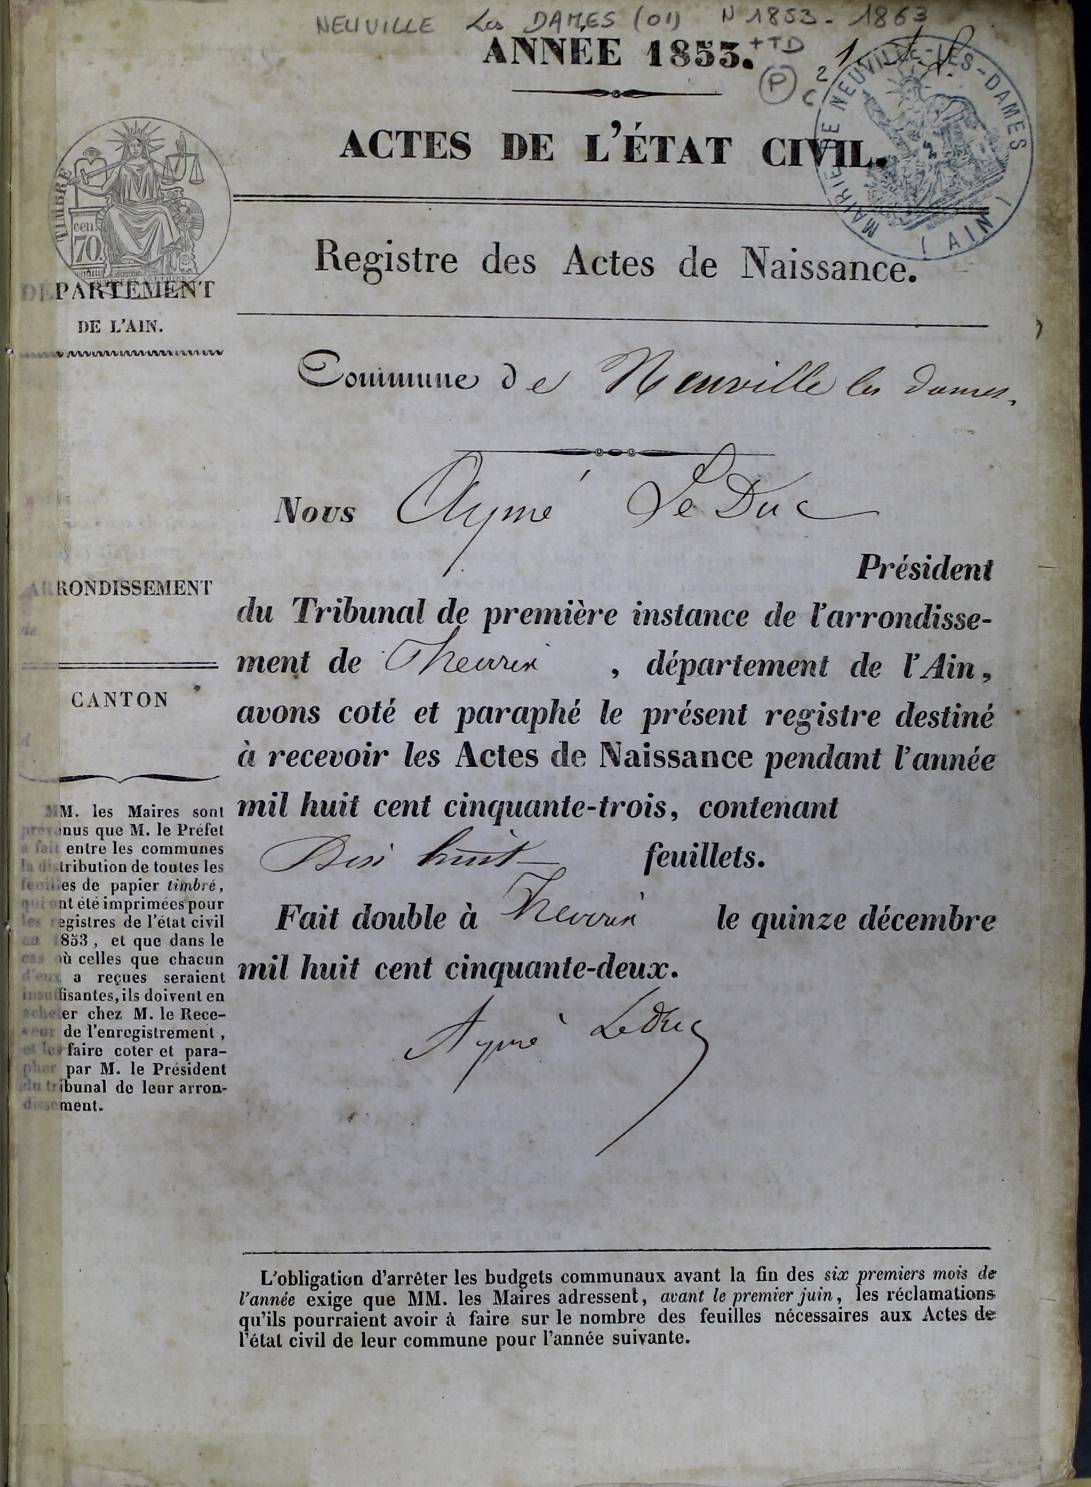 NEUVILLE Les DAMES (01) N 1853 - 1863
+ TD
ANNÉE 1853.
P
2
C
MAIRIE NEUVILLE-LES-DAMES
( AIN )
ACTES DE L'ÉTAT CIVIL.
TIMBRE
cen.
70
Registre des Actes de Naissance.
DÉPARTEMENT
DE L'AIN.
Commune de Neuville les Dames.
Nous Aymé Le Duc
Président
du Tribunal de première instance de l'arrondisse-
ment de Thevrin, département de l'Ain,
avons coté et paraphé le présent registre destiné
à recevoir les Actes de Naissance pendant l'année
mil huit cent cinquante-trois, contenant
Dix huit feuillets.
Fait double à Thevrin le quinze décembre
mil huit cent cinquante-deux.
Aymé LeDuc
ARRONDISSEMENT
de
CANTON
d
MM. les Maires sont
prévenus que M. le Préfet
a fait entre les communes
la distribution de toutes les
feuilles de papier timbré,
qui ont été imprimées pour
les registres de l'état civil
en 1853, et que dans le
cas où celles que chacun
d'eux a reçues seraient
insuffisantes, ils doivent en
acheter chez M. le Rece-
veur de l'enregistrement,
et les faire coter et para-
pher par M. le Président
du tribunal de leur arron-
dissement.
L'obligation d'arrêter les budgets communaux avant la fin des six premiers mois de
l'année exige que MM. les Maires adressent, avant le premier juin, les réclamations
qu'ils pourraient avoir à faire sur le nombre des feuilles nécessaires aux Actes de
l'état civil de leur commune pour l'année suivante.